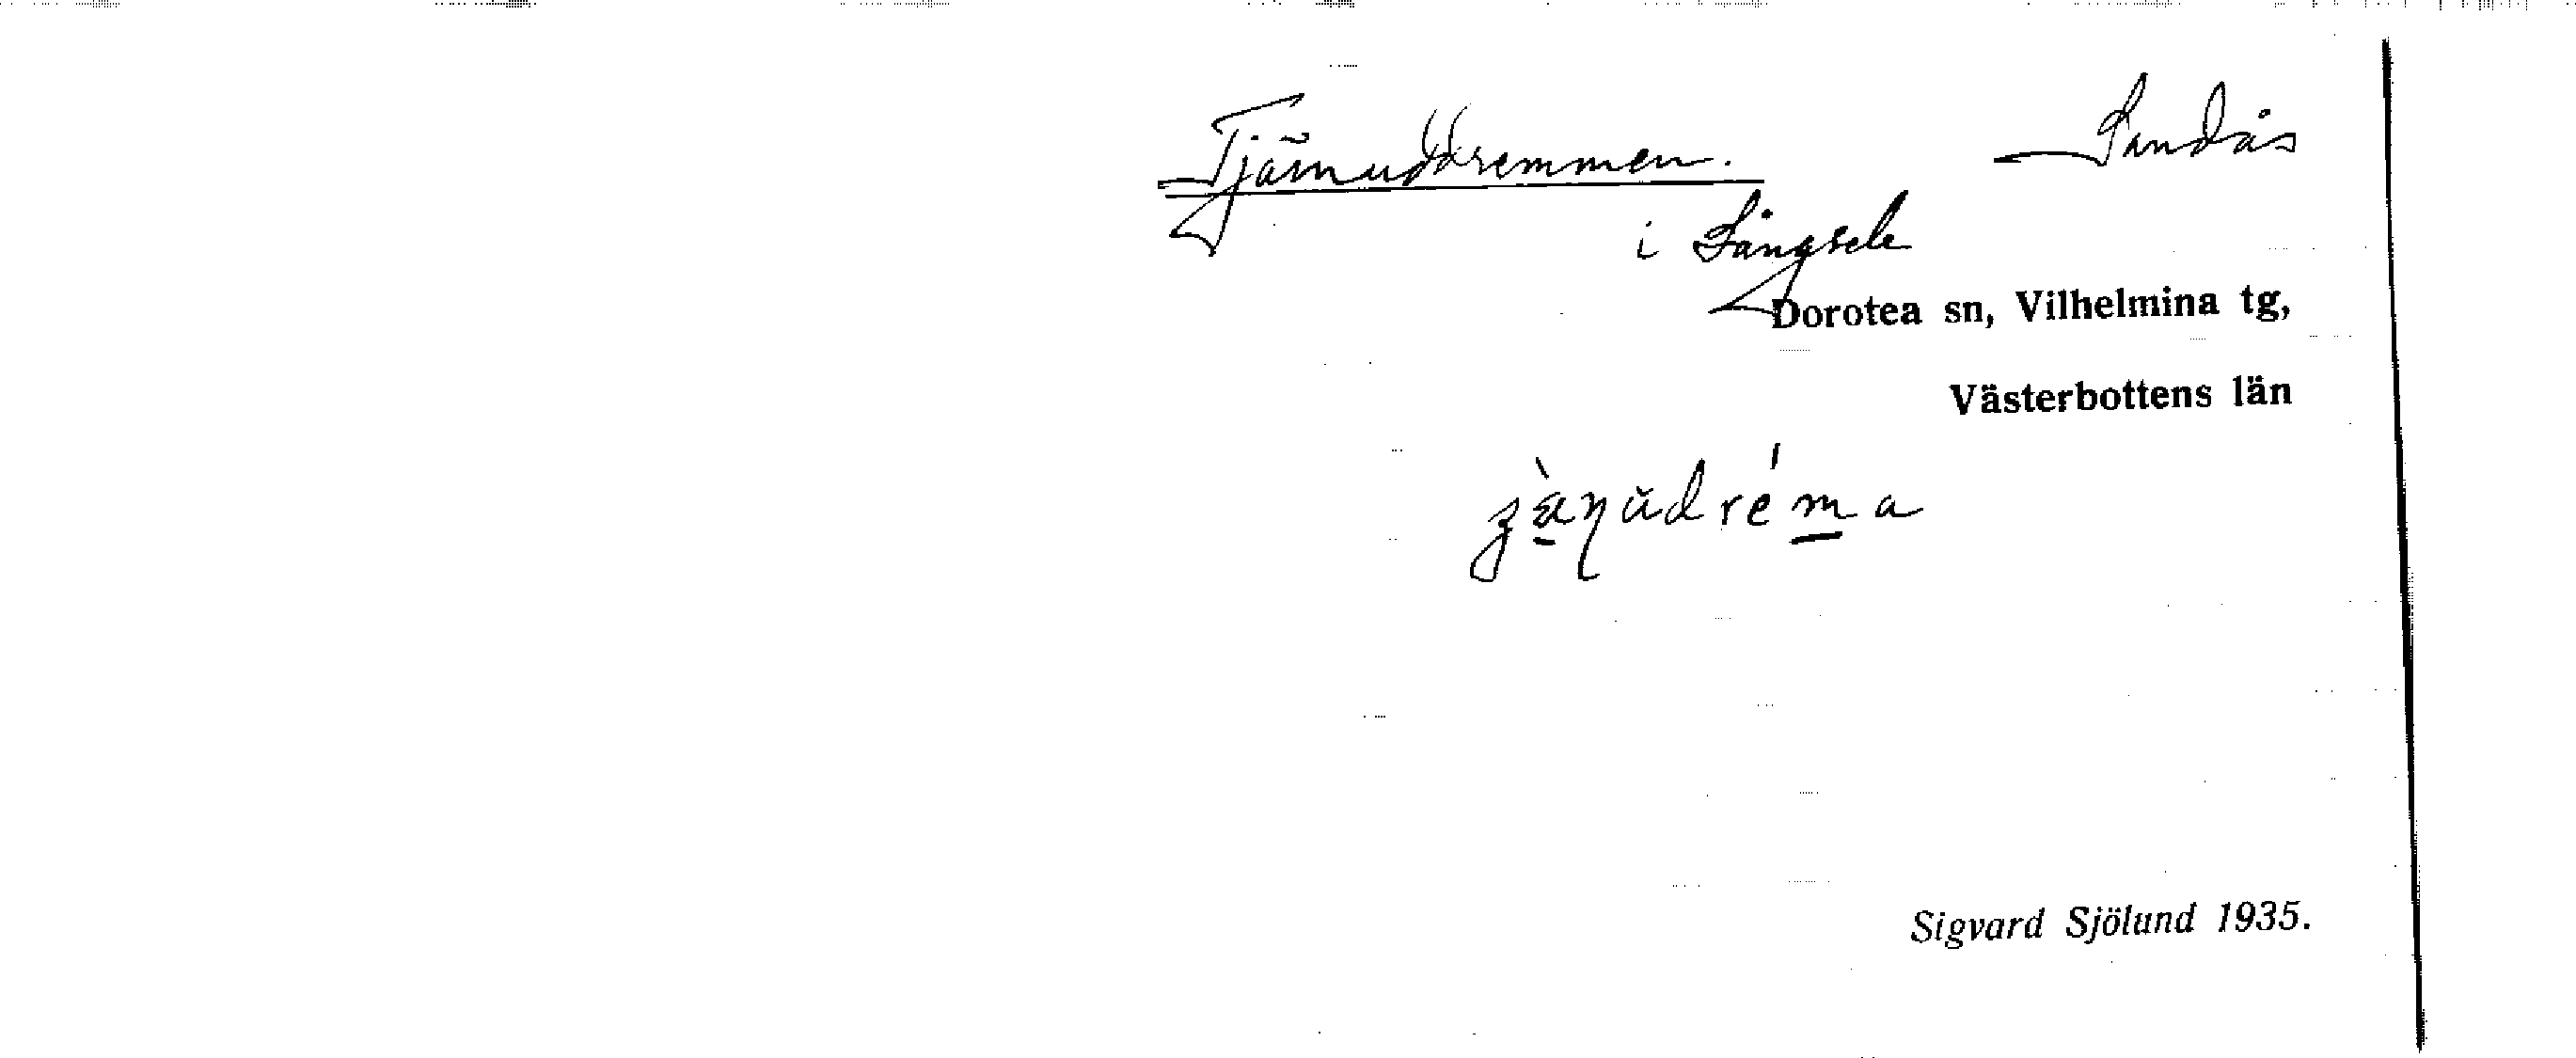 Tjärnuddremmen. Sandås
i Långsele
Dorotea sn, Vilhelmina tg,
Västerbottens län
Sigvard Sjölund 1935.